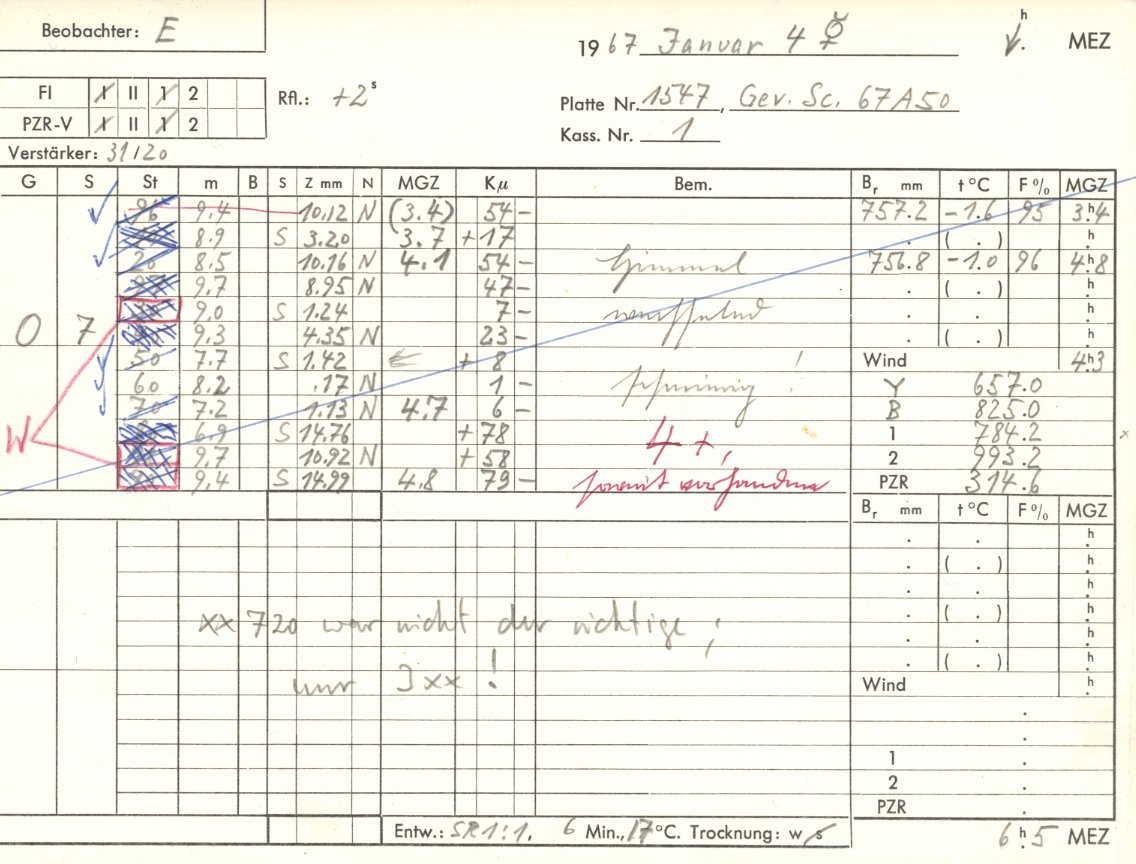 Beobachter: E
1967 Januar 4 ☿ h MEZ
FI I II 1 2 Rfl.: +2 s
Platte Nr. 1547, Gev. Sc. 67A50
PZR-V I II 1 2
Kass. Nr. 1
Verstärker: 31/20
G S St m B S Z mm N MGZ Kμ Bem. Br mm t °C F % MGZ
96 9.4 10.12 N (3.4) 54 - 757.2 -1.6 95 3.h4
8.9 S 3.20 3.7 +17 . ( . ) .h
20 8.5 10.16 N 4.1 54 - Himmel 756.8 -1.0 96 4.h8
9.7 8.95 N 47 - . ( . ) .h
9.0 S 1.24 7 - wechselnd . .h
O 7 9.3 4.35 N 23 - ( . ) .h
50 7.7 S 1.42 + 8 ! Wind 4.h3
60 8.2 .17 N 1 - ! Y 657.0
70 7.2 1.13 N 4.7 6 - B 825.0
W 6.9 S 14.76 +78 4+, 1 784.2
9.7 10.92 N +58 2 993.2
9.4 S 14.99 4.8 79 - soweit vorhanden PZR 314.6
Br mm t °C F % MGZ
. . .h
. ( . ) .h
. . .h
xx 720 war nicht der richtige; . ( . ) .h
. . .h
. ( . ) .h
nur 3xx! Wind .h
.
.
1 .
2 .
PZR .
Entw.: SR1:1, 6 Min., 17 °C. Trocknung: w/s 6 h.5 MEZ